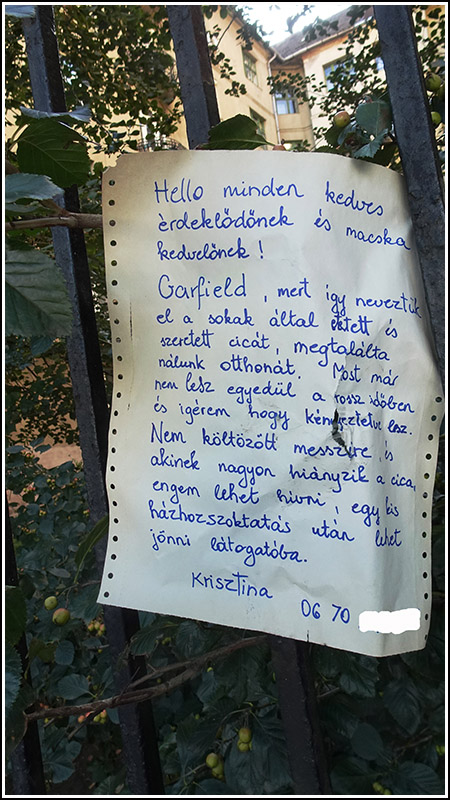 Hello minden kedves
érdeklődőnek és macska
kedvelőnek!
Garfield, mert így neveztük
el a sokak által etetett és
szeretett cicát, megtalálta
nálunk otthonát. Most már
nem lesz egyedül a rossz időben
és igérem hogy kényeztetve lesz.
Nem költözött messzire és
akinek nagyon hiányzik a cica,
engem lehet hívni, egy kis
házhozszoktatás után lehet
jönni látogatóba.
Krisztina
06 70